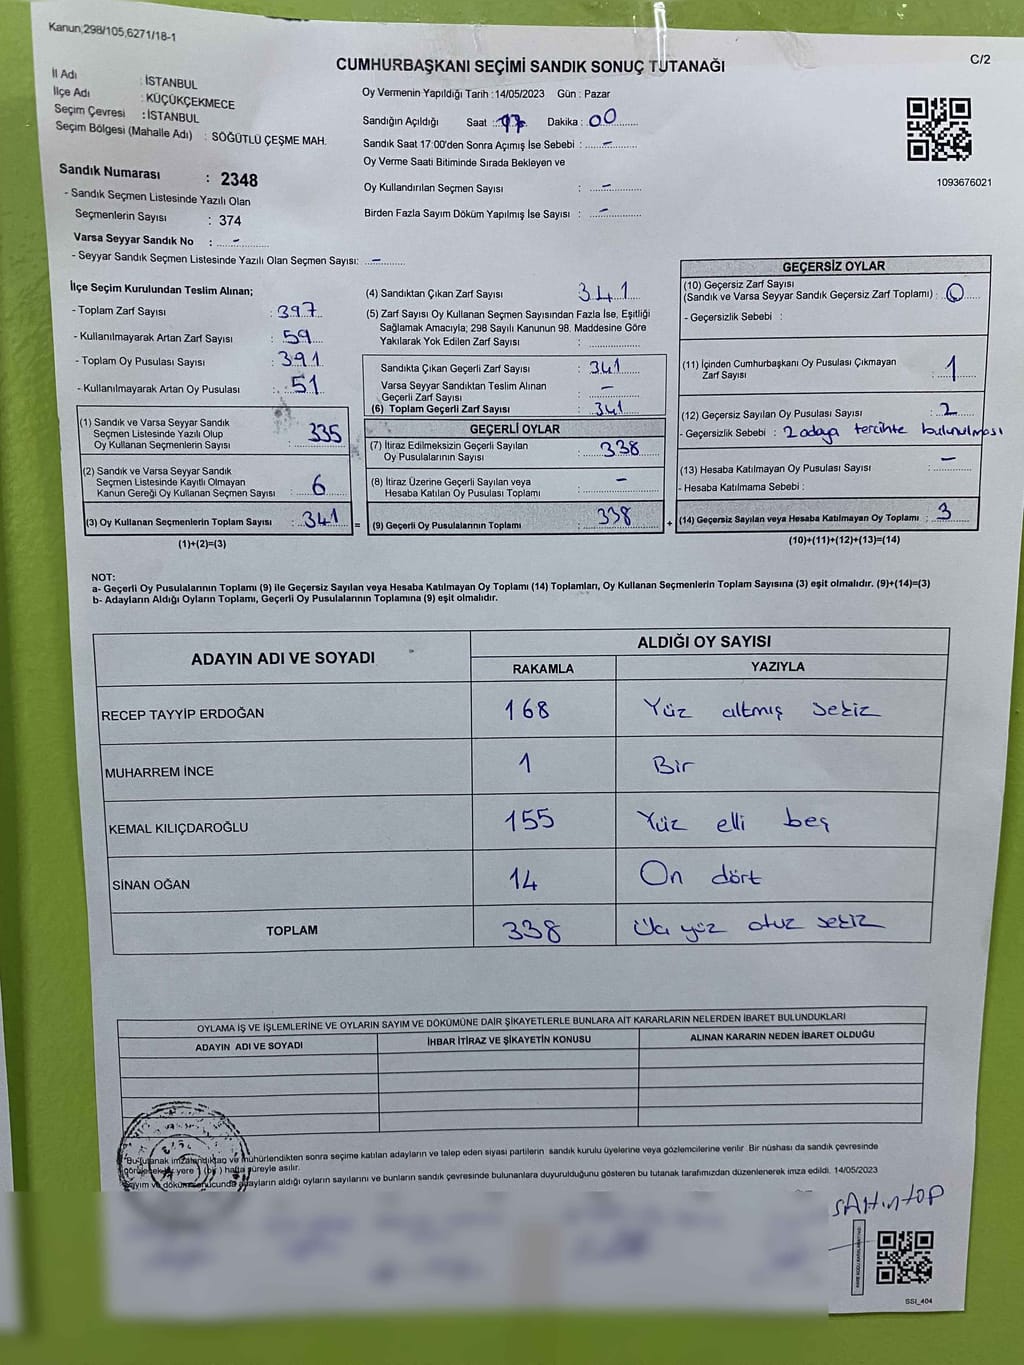 Kanun;298/105,6271/18-1
C/2
CUMHURBAŞKANI SEÇİMİ SANDIK SONUÇ TUTANAĞI
İl Adı : İSTANBUL
İlçe Adı : KÜÇÜKÇEKMECE
Seçim Çevresi : İSTANBUL
Seçim Bölgesi (Mahalle Adı) : SÖĞÜTLÜ ÇEŞME MAH.
Sandık Numarası : 2348
- Sandık Seçmen Listesinde Yazılı Olan
Seçmenlerin Sayısı : 374
Varsa Seyyar Sandık No : -
- Seyyar Sandık Seçmen Listesinde Yazılı Olan Seçmen Sayısı: -
Oy Vermenin Yapıldığı Tarih : 14/05/2023 Gün : Pazar
Sandığın Açıldığı Saat : 17 Dakika : 00
Sandık Saat 17:00'den Sonra Açımış İse Sebebi : -
Oy Verme Saati Bitiminde Sırada Bekleyen ve
Oy Kullandırılan Seçmen Sayısı : -
Birden Fazla Sayım Döküm Yapılmış İse Sayısı : -
1093676021
İlçe Seçim Kurulundan Teslim Alınan;
- Toplam Zarf Sayısı : 397
- Kullanılmayarak Artan Zarf Sayısı : 59
- Toplam Oy Pusulası Sayısı : 391
- Kullanılmayarak Artan Oy Pusulası : 51
(1) Sandık ve Varsa Seyyar Sandık
Seçmen Listesinde Yazılı Olup
Oy Kullanan Seçmenlerin Sayısı : 335
(2) Sandık ve Varsa Seyyar Sandık
Seçmen Listesinde Kayıtlı Olmayan
Kanun Gereği Oy Kullanan Seçmen Sayısı : 6
(3) Oy Kullanan Seçmenlerin Toplam Sayısı : 341 =
(1)+(2)=(3)
(4) Sandıktan Çıkan Zarf Sayısı : 341
(5) Zarf Sayısı Oy Kullanan Seçmen Sayısından Fazla İse, Eşitliği
Sağlamak Amacıyla; 298 Sayılı Kanunun 98. Maddesine Göre
Yakılarak Yok Edilen Zarf Sayısı :
Sandıkta Çıkan Geçerli Zarf Sayısı : 341
Varsa Seyyar Sandıktan Teslim Alınan
Geçerli Zarf Sayısı : -
(6) Toplam Geçerli Zarf Sayısı : 341
GEÇERLİ OYLAR
(7) İtiraz Edilmeksizin Geçerli Sayılan
Oy Pusulalarının Sayısı : 338
(8) İtiraz Üzerine Geçerli Sayılan veya
Hesaba Katılan Oy Pusulası Toplamı : -
(9) Geçerli Oy Pusulalarının Toplamı : 338 +
GEÇERSİZ OYLAR
(10) Geçersiz Zarf Sayısı
(Sandık ve Varsa Seyyar Sandık Geçersiz Zarf Toplamı) : 0
- Geçersizlik Sebebi :
(11) İçinden Cumhurbaşkanı Oy Pusulası Çıkmayan
Zarf Sayısı : 1
(12) Geçersiz Sayılan Oy Pusulası Sayısı : 2
- Geçersizlik Sebebi : 2 adaya tercihte bulunulması
(13) Hesaba Katılmayan Oy Pusulası Sayısı : -
- Hesaba Katılmama Sebebi :
(14) Geçersiz Sayılan veya Hesaba Katılmayan Oy Toplamı : 3
(10)+(11)+(12)+(13)=(14)
NOT:
a- Geçerli Oy Pusulalarının Toplamı (9) ile Geçersiz Sayılan veya Hesaba Katılmayan Oy Toplamı (14) Toplamları, Oy Kullanan Seçmenlerin Toplam Sayısına (3) eşit olmalıdır. (9)+(14)=(3)
b- Adayların Aldığı Oyların Toplamı, Geçerli Oy Pusulalarının Toplamına (9) eşit olmalıdır.
ADAYIN ADI VE SOYADI
ALDIĞI OY SAYISI
RAKAMLA YAZIYLA
RECEP TAYYİP ERDOĞAN 168 Yüz altmış sekiz
MUHARREM İNCE 1 Bir
KEMAL KILIÇDAROĞLU 155 Yüz elli beş
SİNAN OĞAN 14 On dört
TOPLAM 338 Üç yüz otuz sekiz
OYLAMA İŞ VE İŞLEMLERİNE VE OYLARIN SAYIM VE DÖKÜMÜNE DAİR ŞİKAYETLERLE BUNLARA AİT KARARLARIN NELERDEN İBARET BULUNDUKLARI
ADAYIN ADI VE SOYADI
İHBAR İTİRAZ VE ŞİKAYETİN KONUSU
ALINAN KARARIN NEDEN İBARET OLDUĞU
Bu tutanak imzalandıktan ve mühürlendikten sonra seçime katılan adayların ve talep eden siyasi partilerin sandık kurulu üyelerine veya gözlemcilerine verilir. Bir nüshası da sandık çevresinde
görülecek yere (bir) hafta süreyle asılır.
Sayım ve dökümü sonucunda adayların aldığı oyların sayılarını ve bunların sandık çevresinde bulunanlara duyurulduğunu gösteren bu tutanak tarafımızdan düzenlenerek imza edildi. 14/05/2023
ŞAHİNTOP
SSI_404